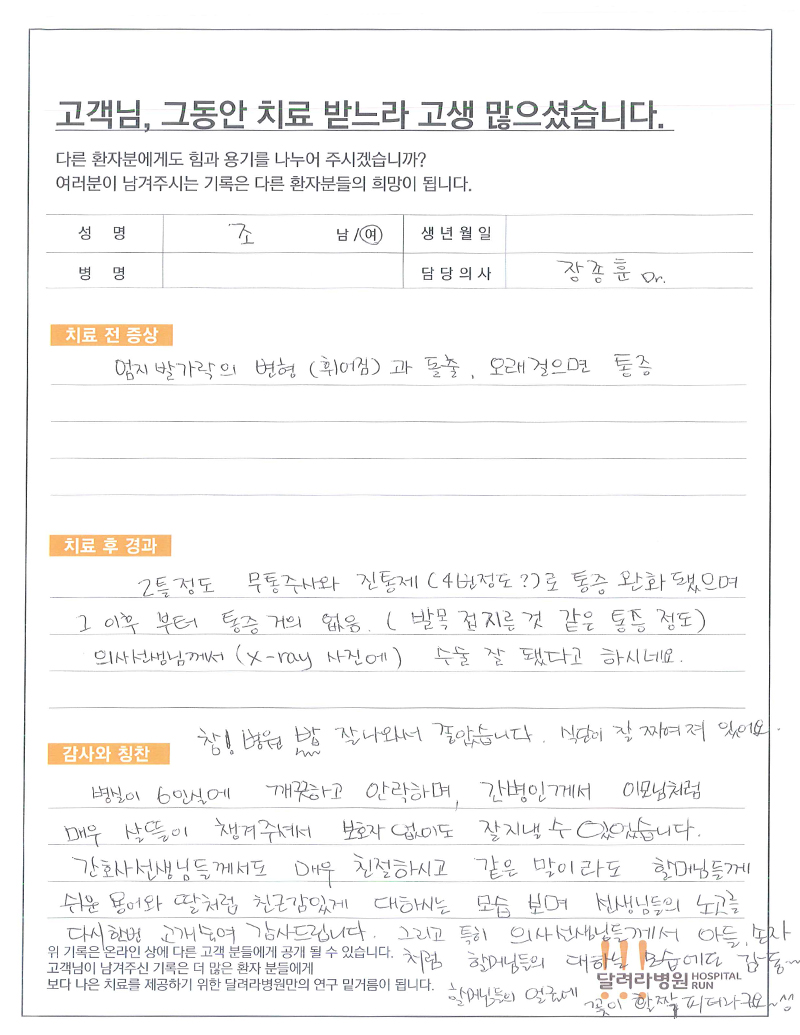 고객님, 그동안 치료 받느라 고생 많으셨습니다.
다른 환자분에게도 힘과 용기를 나누어 주시겠습니까?
여러분이 남겨주시는 기록은 다른 환자분들의 희망이 됩니다.
성 명 조 남/여 생년월일
병 명 담당의사 장종훈 Dr.
치료 전 증상
엄지발가락의 변형 (휘어짐)과 돌출, 오래걸으면 통증
치료 후 경과
2틀정도 무통주사와 진통제 (4번정도?)로 통증 완화됐으며
그 이후 부터 통증 거의 없음. ( 발목 접지른것 같은 통증 정도)
의사선생님께서 (x-ray 사진에) 수술 잘 됐다고 하시네요.
참! 병원 밥 잘나와서 좋았습니다. 식단이 잘 짜여져 있어요.
감사와 칭찬
병실이 6인실에 깨끗하고 안락하며, 간병인께서 이모님처럼
매우 살뜰이 챙겨주셔서 보호자 없이도 잘지낼 수 있었습니다.
간호사선생님들께서도 매우 친절하시고 같은 말이라도 할머님들께
쉬운 용어와 딸처럼 친근감있게 대하시는 모습 보며 선생님들의 노고를
다시한번 고개숙여 감사드립니다. 그리고 특히 의사선생님들께서 아들, 손자
처럼 할머님들의 대하실 모습에도 감동~
할머님들의 얼굴에 꽃이 활짝 피더라구요~
위 기록은 온라인 상에 다른 고객 분들에게 공개 될 수 있습니다.
고객님이 남겨주신 기록은 더 많은 환자 분들에게
보다 나은 치료를 제공하기 위한 달려라병원만의 연구 밑거름이 됩니다.
달려라병원 HOSPITAL RUN